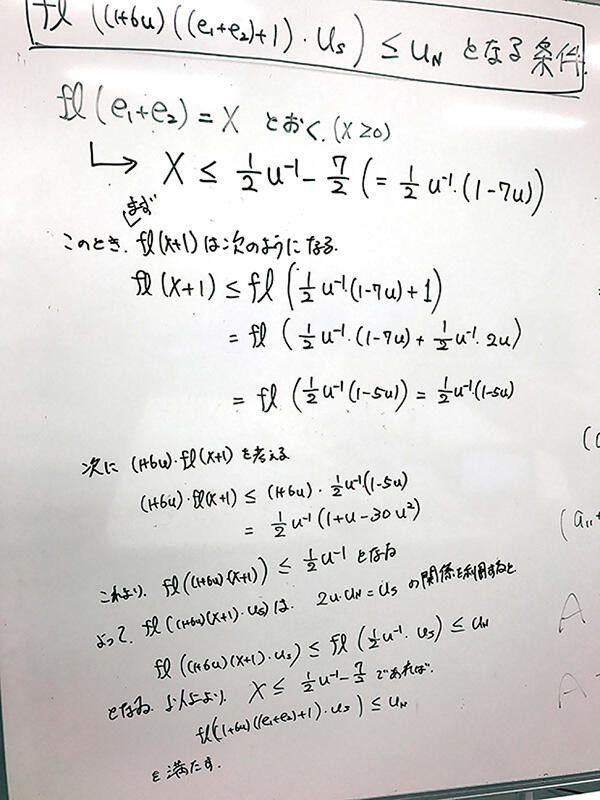 fl ((1+6u)((e₁+e₂)+1)・u_S) ≤ u_N となる条件.
fl(e₁+e₂) = X とおく. (X≥0)
↳ X ≤ 1/2 u⁻¹ − 7/2 (= 1/2 u⁻¹・(1−7u))
まず
このとき. fl(X+1) は次のようになる.
fl(X+1) ≤ fl(1/2 u⁻¹(1−7u)+1)
= fl(1/2 u⁻¹・(1−7u) + 1/2 u⁻¹・2u)
= fl(1/2 u⁻¹(1−5u)) = 1/2 u⁻¹(1−5u)
次に (1+6u)・fl(X+1) を考える
(1+6u)・fl(X+1) ≤ (1+6u)・1/2 u⁻¹(1−5u)
= 1/2 u⁻¹(1+u−30u²)
これより. fl((1+6u)(X+1)) ≤ 1/2 u⁻¹ となる
よって. fl((1+6u)(X+1)・u_S) は. 2u・u_N = u_S の関係を利用すると
fl((1+6u)(X+1)・u_S) ≤ fl(1/2 u⁻¹・u_S) ≤ u_N
となる. 以上より. X ≤ 1/2 u⁻¹ − 7/2 であれば.
fl((1+6u)((e₁+e₂)+1)・u_S) ≤ u_N
を満たす.
(a₁₁+
A
A